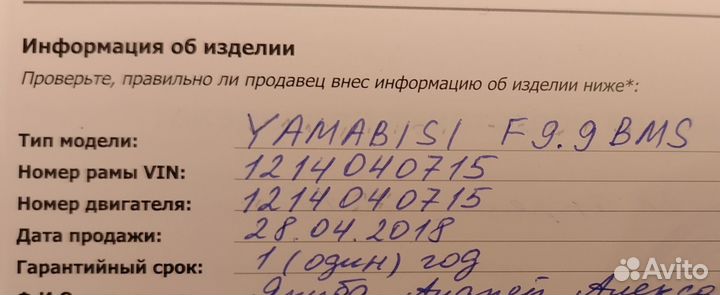 Информация об изделии
Проверьте, правильно ли продавец внес информацию об изделии ниже*:
Тип модели: YAMABISI F9.9BMS
Номер рамы VIN: 1214040715
Номер двигателя: 1214040715
Дата продажи: 28.04.2018
Гарантийный срок: 1 (один) год
Avito